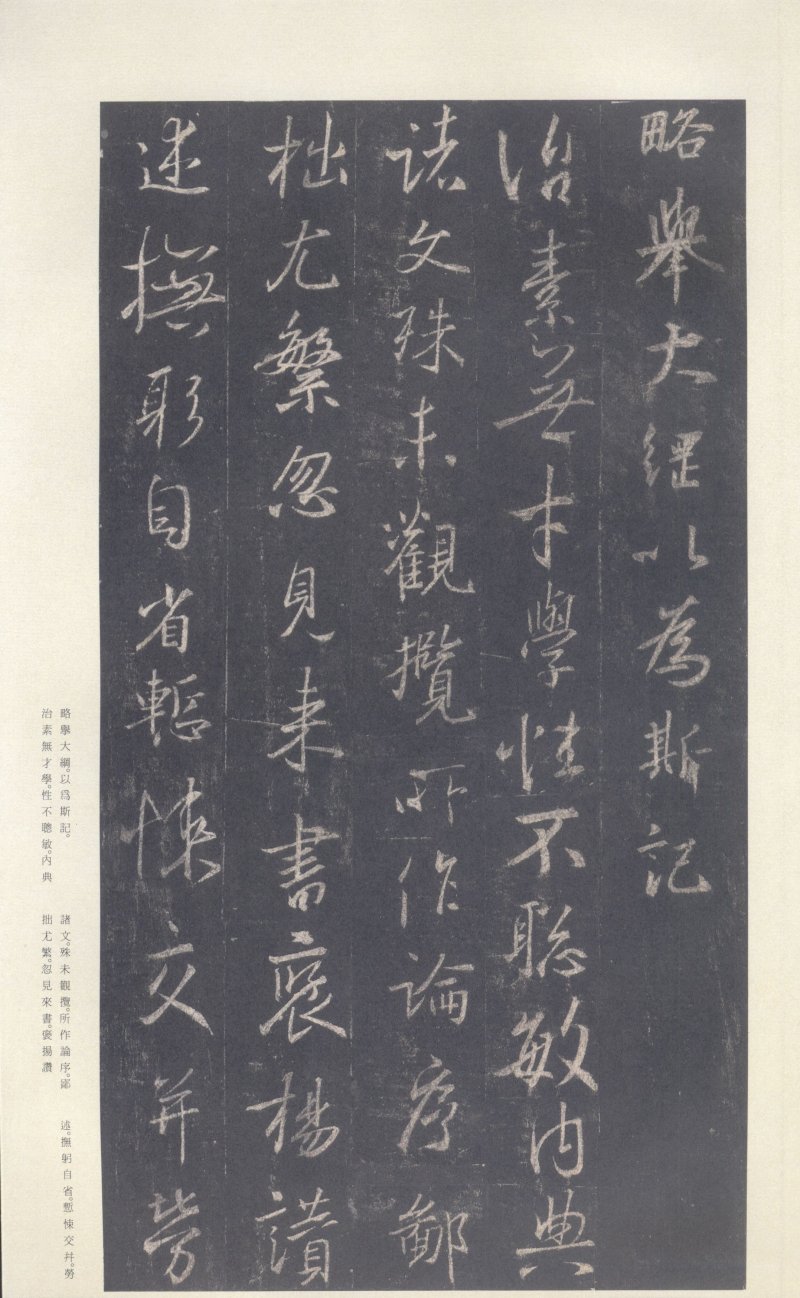 略舉大綱以為斯記
治素無才學性不聰敏内典
諸文殊未觀攬所作論序鄙
拙尤繁忽見来書褒揚讃
述撫躬自省慙悚交并勞
略舉大綱。以爲斯記。
治素無才學。性不聰敏。内典
諸文。殊未觀攬。所作論序。鄙
拙尤繁。忽見來書。褒揚讚
述。撫躬自省。慙悚交并。勞